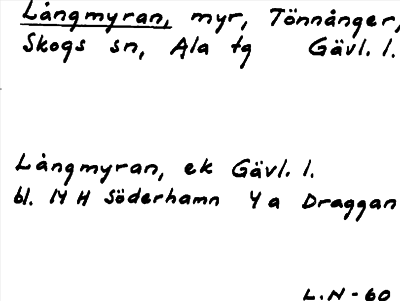 Långmyran, myr, Tönnånger,
Skogs sn, Ala tg Gävl. l.
Långmyran, ek Gävl. l.
bl. 14 H Söderhamn 4 a Draggan
L.N-60